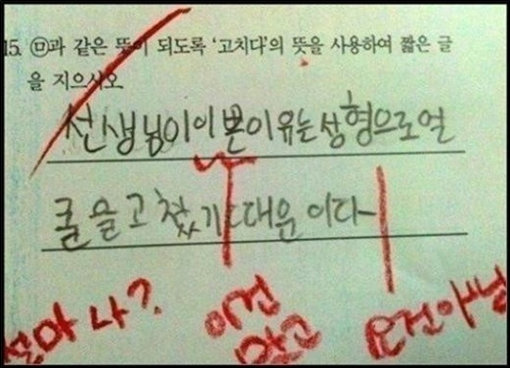 15. ㉤과 같은 뜻이 되도록 '고치다'의 뜻을 사용하여 짧은 글
을 지으시오
선생님이 이쁜이유는 성형으로 얼
굴을 고쳤기 때문이다
설마 나?
이건
맞고
요건아님